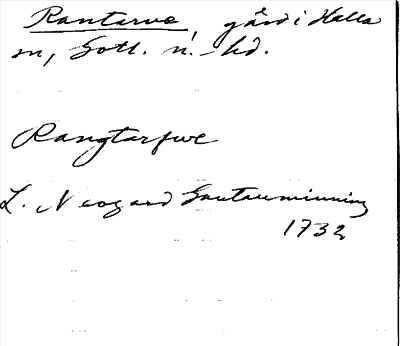 Rantarve, gård i Halla
sn, Gotl. n. hd.
Rangtarfwe
L. Neogard Gautauminning
1732